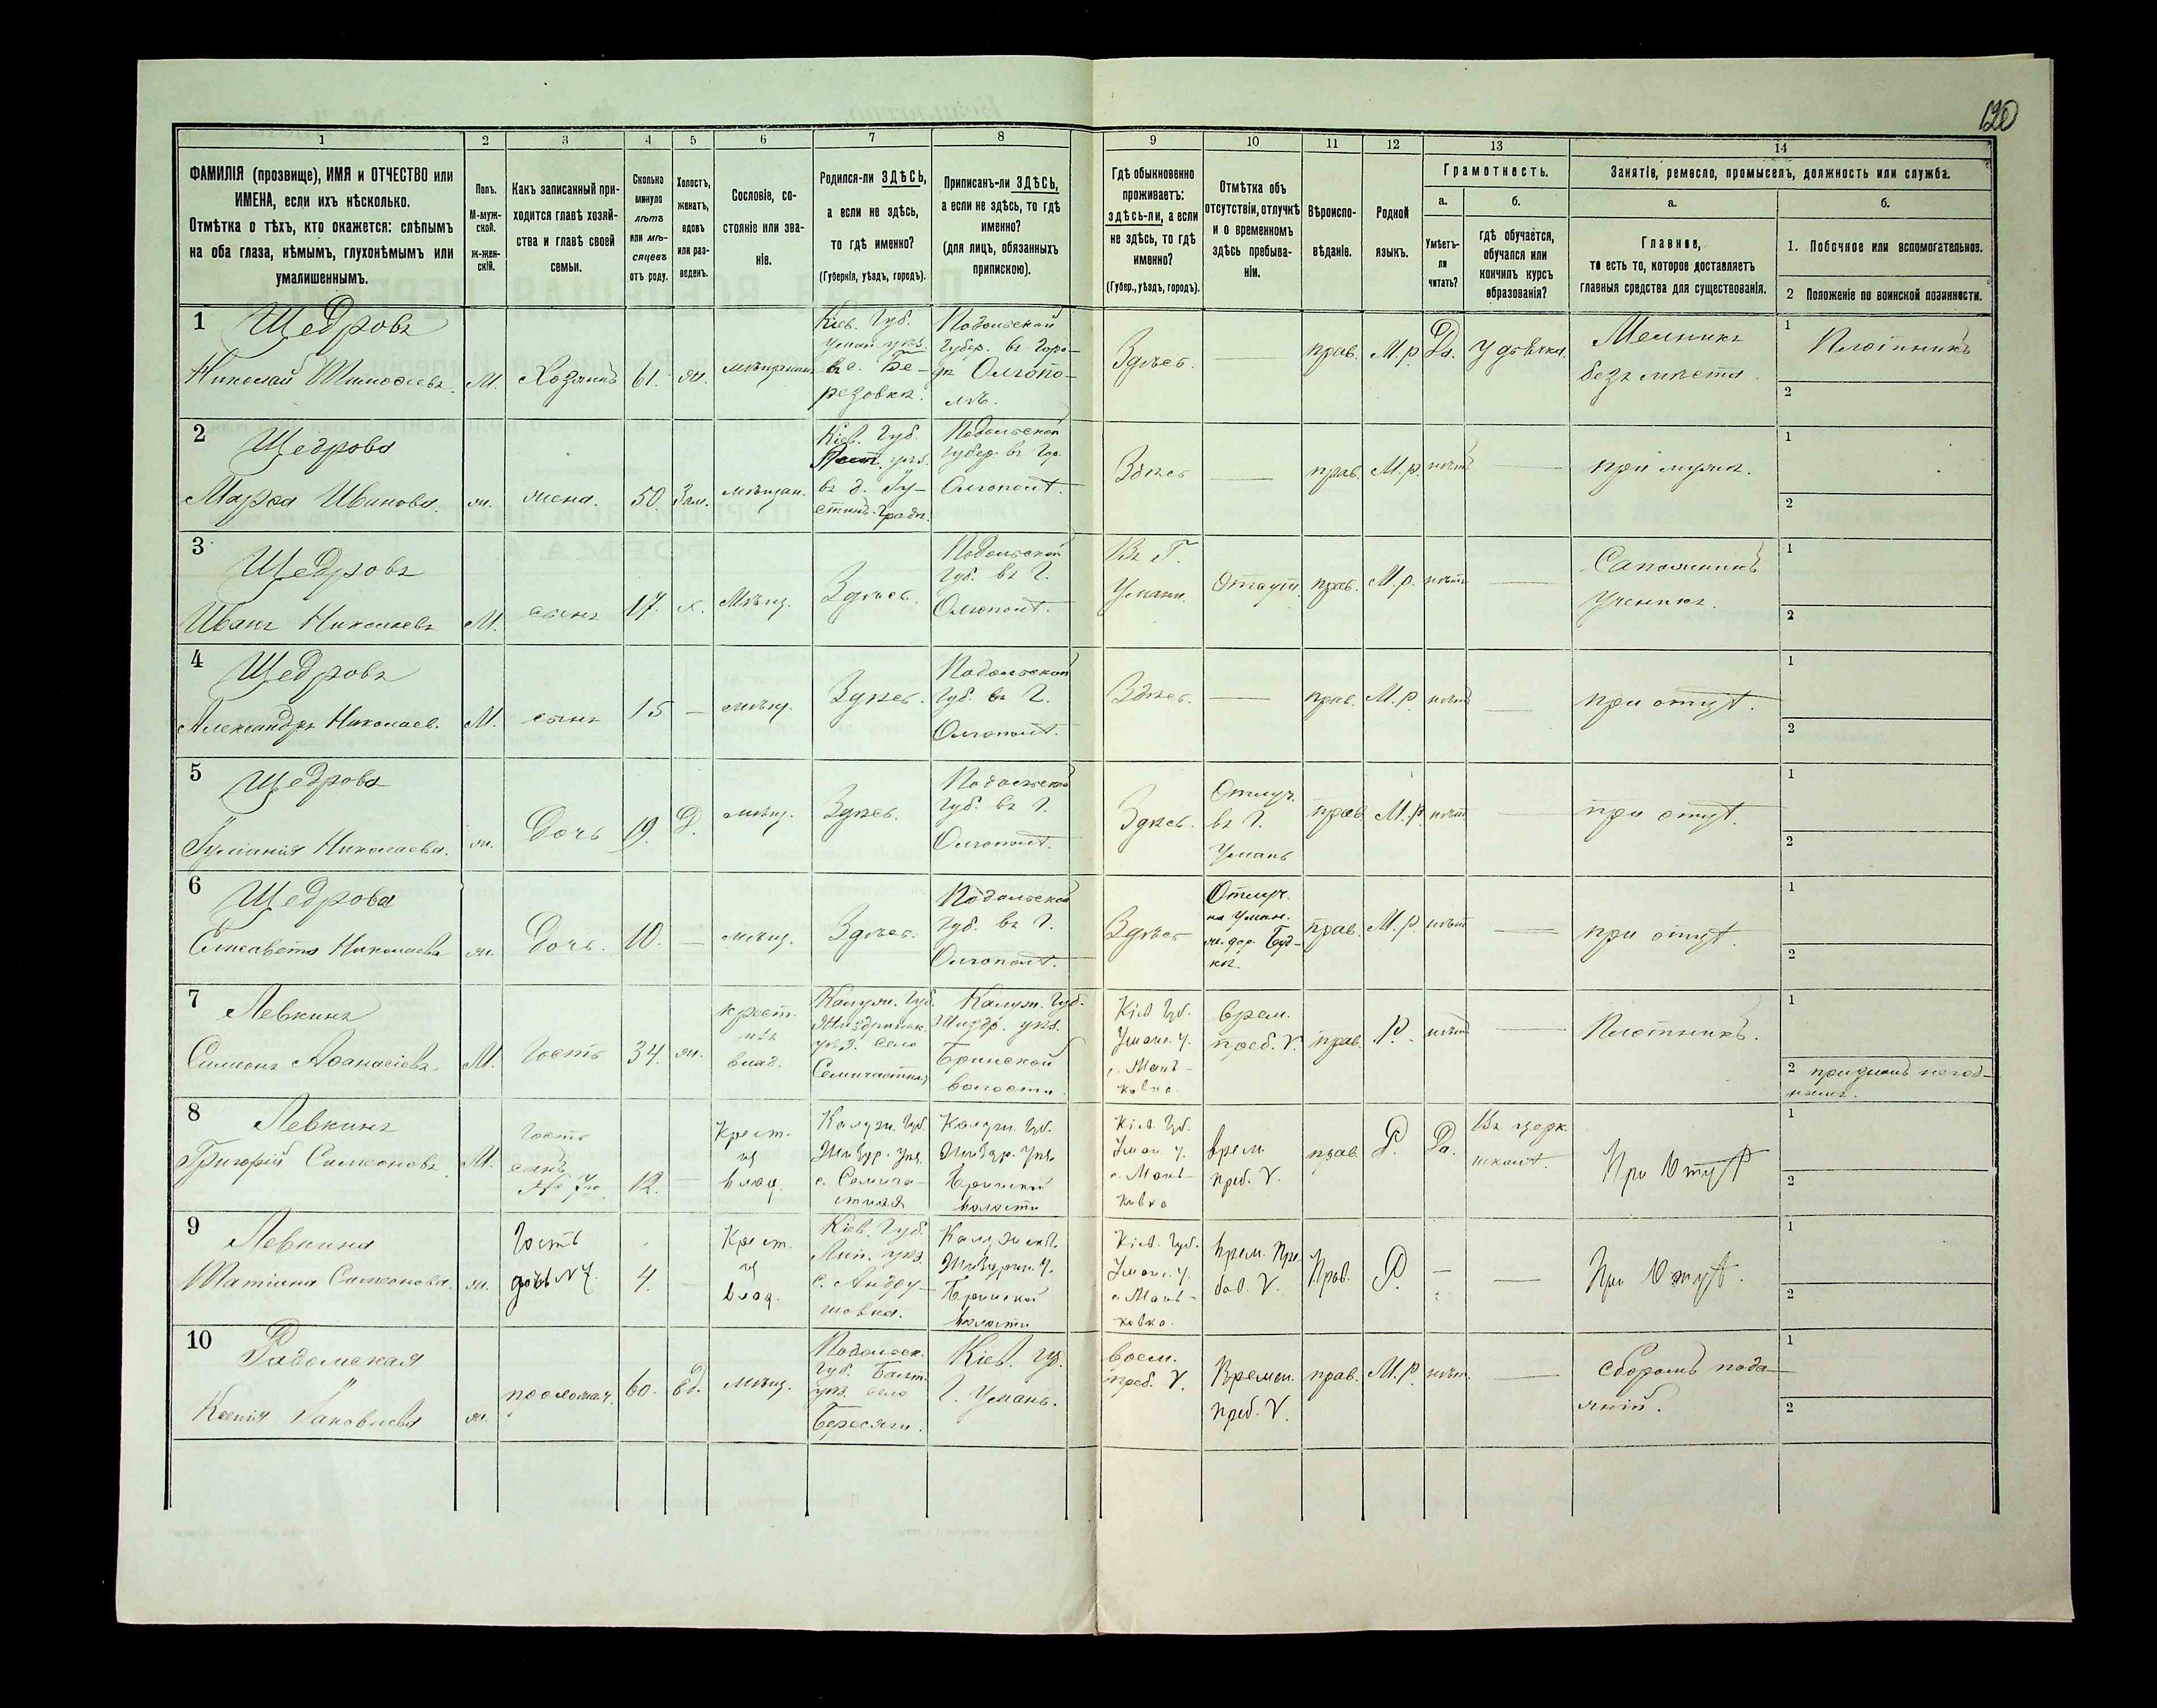 120
1
2
3
4
5
6
7
8
9
10
11
12
13
14
ФАМИЛІЯ (прозвище), ИМЯ и ОТЧЕСТВО или
ИМЕНА, если ихъ нѣсколько.
Отмѣтка о тѣхъ, кто окажется: слѣпымъ
на оба глаза, нѣмымъ, глухонѣмымъ или
умалишеннымъ.
Полъ.
М-муж-
ской.
ж-жен-
скій.
Какъ записанный при-
ходится главѣ хозяй-
ства и главѣ своей
семьи.
Сколько
минуло
лѣтъ
или мѣ-
сяцевъ
отъ роду.
Холостъ,
женатъ,
вдовъ
или раз-
веденъ.
Сословіе, со-
стояніе или зва-
ніе.
Родился-ли ЗДѢСЬ,
а если не здѣсь,
то гдѣ именно?
(Губернія, уѣздъ, городъ).
Приписанъ-ли ЗДѢСЬ,
а если не здѣсь, то гдѣ
именно?
(для лицъ, обязанныхъ
припискою).
Гдѣ обыкновенно
проживаетъ:
здѣсь-ли, а если
не здѣсь, то гдѣ
именно?
(Губер., уѣздъ, городъ).
Отмѣтка объ
отсутствіи, отлучкѣ
и о временномъ
здѣсь пребыва-
ніи.
Вѣроиспо-
вѣданіе.
Родной
языкъ.
Грамотность.
а.
Умѣетъ-
ли
читать?
б.
гдѣ обучается,
обучался или
кончилъ курсъ
образованія?
Занятіе, ремесло, промыселъ, должность или служба.
а.
Главное,
то есть то, которое доставляетъ
главныя средства для существованія.
б.
1. Побочное или вспомогательное.
2 Положеніе по воинской повинности.
1 Щедровъ
Николай Тимофеевъ
М.
Хозяинъ
61.
ж.
мѣщанинъ
Кіев. Губ.
Уман. уѣз.
въ с. Бе-
резовка.
Подольской
Губер. въ Горо-
дѣ Ольгопо-
лѣ.
Здѣсь.
прав.
М.р.
Да.
У дьячка.
Мельникъ
безъ места.
1 Плотникъ
2
2 Щедрова
Марфа Иванова.
ж.
жена.
50.
Зам.
мѣщан.
Кіев. Губ.
уѣз.
въ д.
Подольской
Губер. въ Гор.
Ольгопол.
Здѣсь
прав.
М.р.
нѣтъ
при мужѣ.
1
2
3 Щедровъ
Иванъ Николаевъ
М.
сынъ
17.
х.
Мѣщ.
Здѣсь.
Подольской
Губ. въ Г.
Ольгопол.
Въ Г.
Умани.
прав.
М.р.
нѣтъ
Сапожникъ
Ученикъ.
1
2
4 Щедровъ
Александръ Николаев.
М.
сынъ
15
мѣщ.
Здѣсь.
Подольской
Губ. въ Г.
Ольгопол.
Здѣсь.
прав.
М.р.
нѣтъ
при отцѣ.
1
2
5 Щедрова
Николаева.
ж.
Дочь
19.
Д.
мѣщ.
Здѣсь.
Подольской
Губ. въ Г.
Ольгопол.
Здѣсь.
Отлуч.
въ Г.
Умань
прав.
М.р.
нѣтъ
при отцѣ.
1
2
6 Щедрова
Елисавета Николаева
ж.
Дочь.
10.
мѣщ.
Здѣсь.
Подольской
Губ. въ Г.
Ольгопол.
Здѣсь
Отлуч.
на Уман.
ж. дор. Буд-
ка.
прав.
М.р.
нѣтъ
при отцѣ.
1
2
7 Левкинъ
Симеонъ Афанасіевъ
М.
Гость
34.
ж.
крест.
изъ
влад.
Калуж. Губ.
Жиздринск.
уѣз. село
Калуж. Губ.
Жиздр. уѣз.
Брынской
волости
Кіев. Губ.
Уман. у.
с. Мань-
ковка.
Врем.
преб. V.
прав.
Р.
нѣтъ
Плотникъ.
1
2 признанъ негод-
нымъ.
8 Левкинъ
Григорій Симеоновъ
М.
Гость
сынъ
№ 7го
12.
Крест.
из
влад.
Калуж. Губ.
Жиздр. уѣз.
Калуж. Губ.
Жиздр. уѣз.
Брынской
волости
Кіев. Губ.
Уман. у.
с. Мань-
ковка
Врем.
преб. V.
прав.
Р.
Да.
Въ церк.
школ.
При Отцѣ
1
2
9 Левкина
Татіана Симеонова.
ж.
Гость
дочь №7.
4.
Крест.
из
влад.
Кіев. Губ.
Лип. уѣз.
с. Андру-
шовка.
Жиздрин. у.
Брынской
волости
Кіев. Губ.
Уман. у.
с. Мань-
ковка.
Врем. Пре
бов. V.
Прав.
Р.
При Отцѣ.
1
2
10 Радомская
Ксенія Яковлева
ж.
60.
вд.
мѣщ.
Подольск.
Губ. Балт.
уѣз. село
Кіев. Губ.
Г. Умань.
преб. V.
Времен.
преб. V.
прав.
М.р.
нѣт.
сборомъ пода-
яній.
1
2